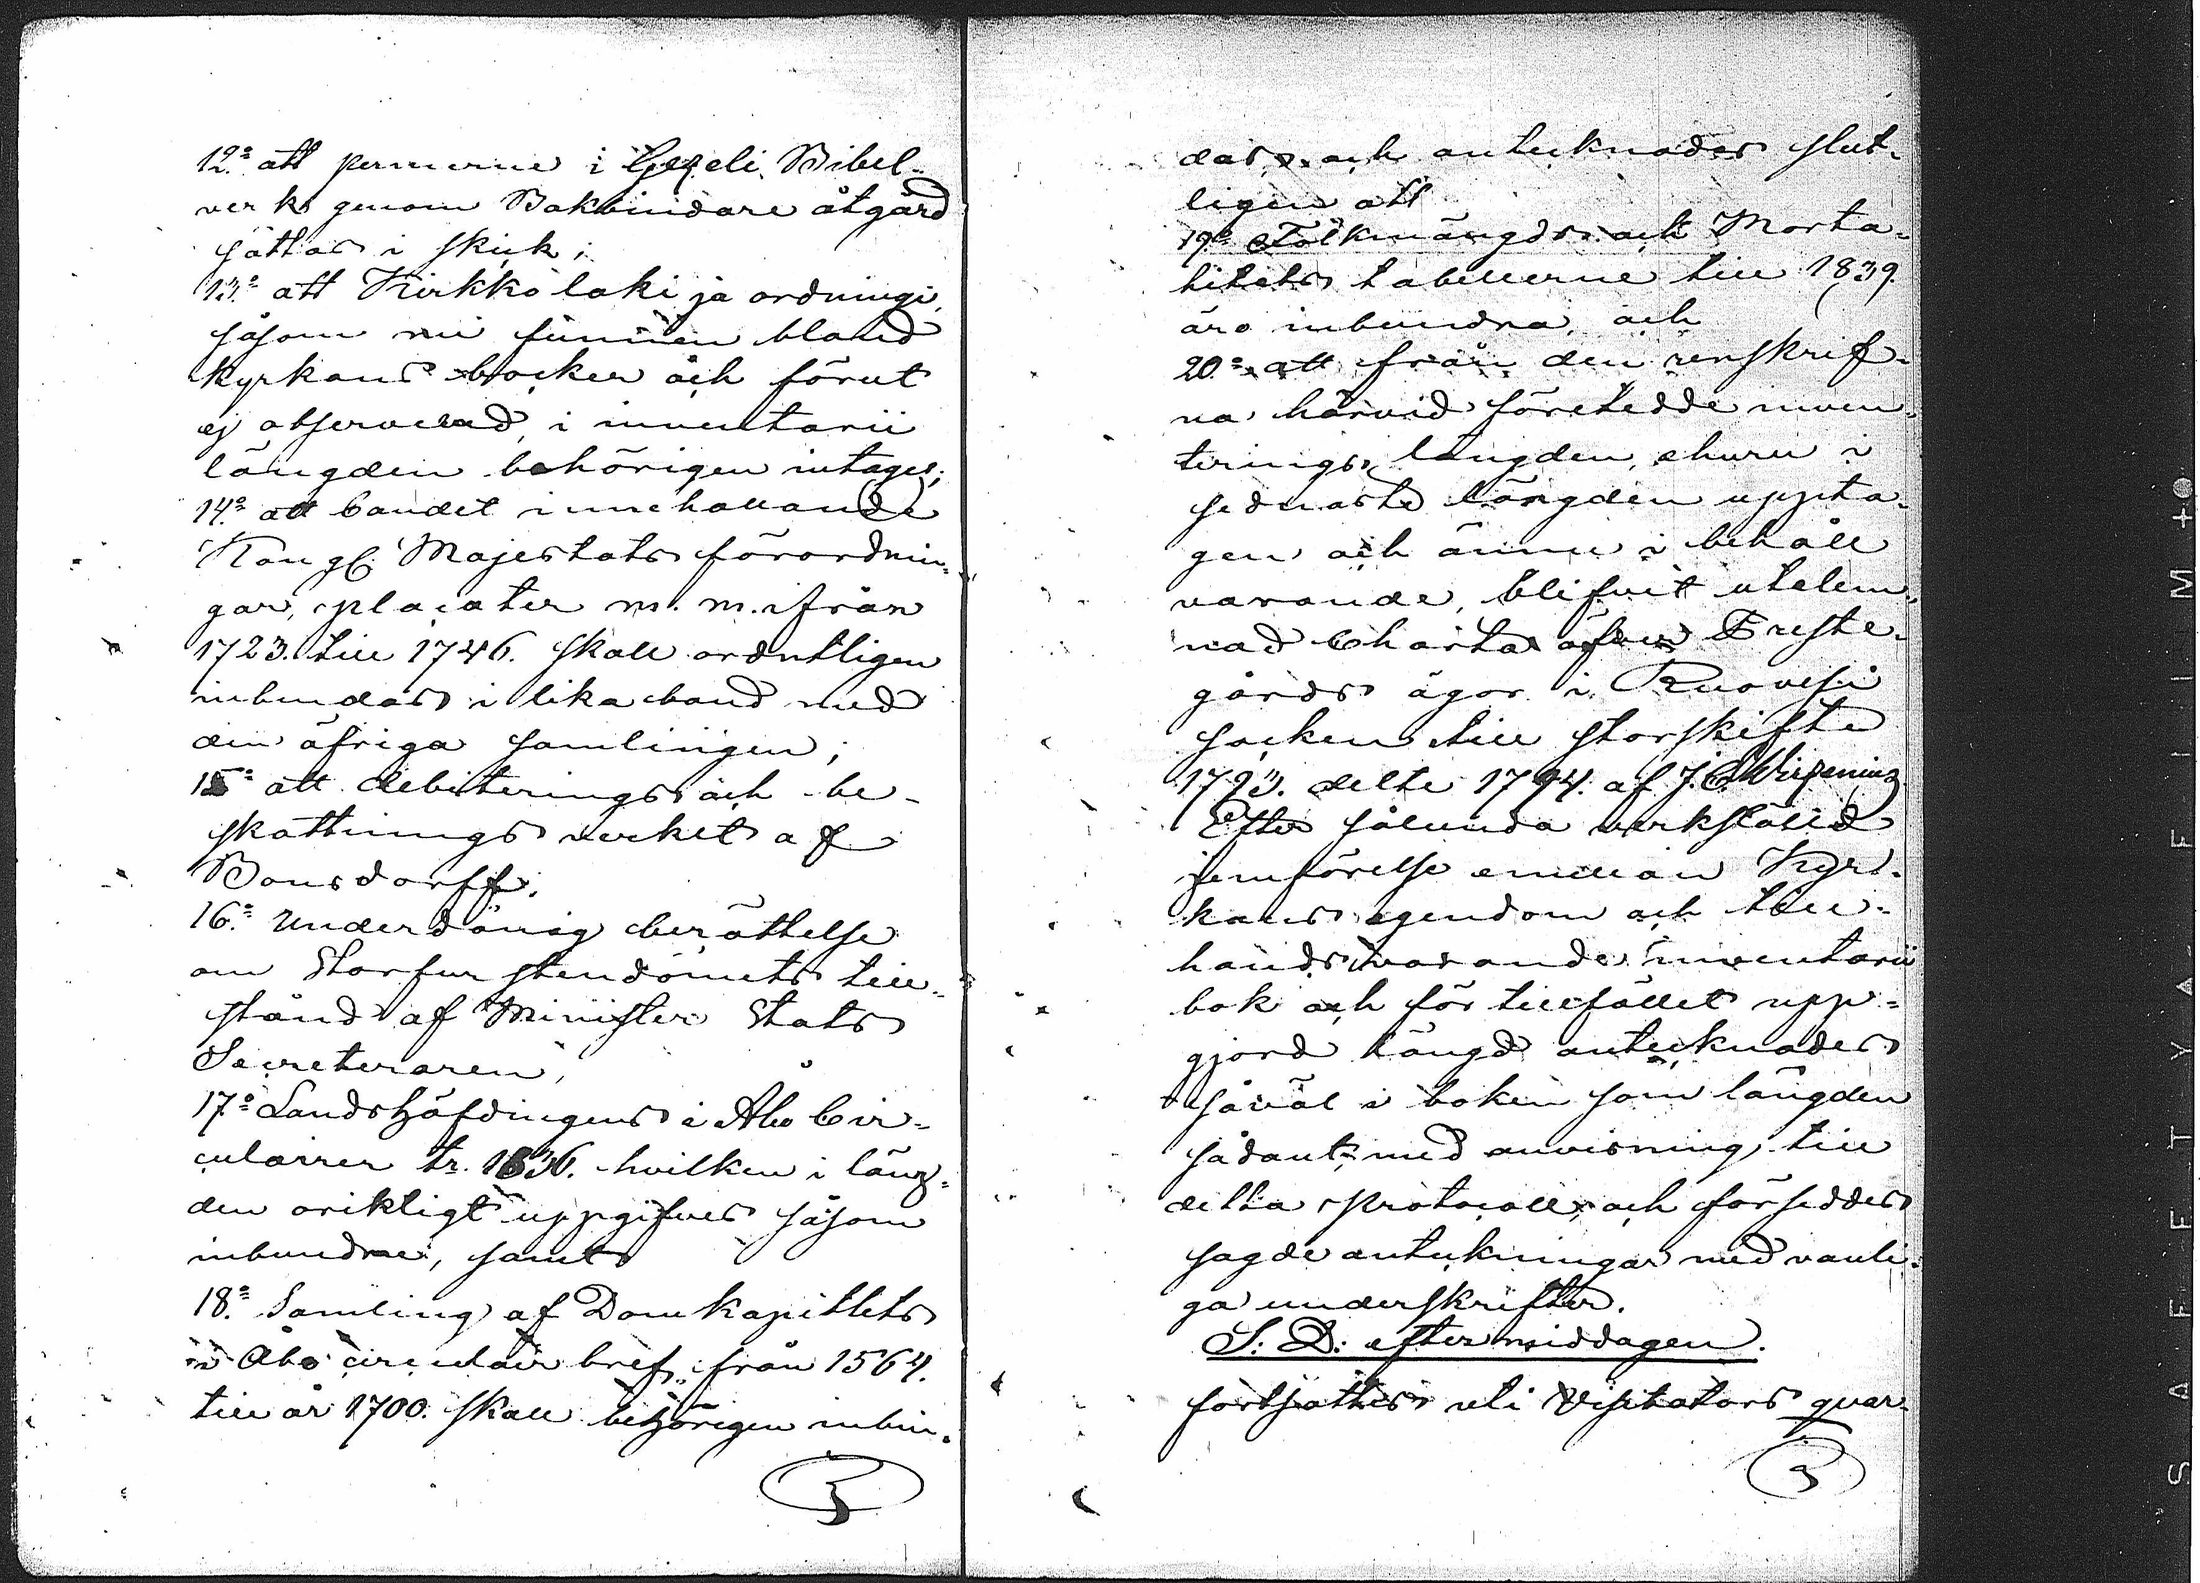 12:o att permerne i Gezeli Bibel-
verk genom Bokbindare åtgärd
sättas i skick;
13:o att Kirkko laki ja ordningi,
såsom nu funnen bland
kyrkans böcker och förut
ej observerad, i inventarii
längden behörigen intages;
14:o att bandet innehållande
Kongl. Majestäts förordnin-
gar, placater m. m. ifrån
1723. till 1746. skall ordntligen
inbindas i lika band med
den öfriga samlingen;
15:o att debiterings och be-
skattnings verket af
Bonsdorff.
16:o Underdånig berättelse
om Storfurstendömets till-
stånd af Minister Stats
Secreteraren,
17:o Landshöfdingens i Åbo Cir-
culairer tr. 1836. hvilken i läng-
den oriktligt uppgifves såsom
inbundne, samt
18:o Samling af Domkapitlets
i Åbo circulair bref, från 1564.
till år 1700. skall behörigen inbin-
3
das, och antecknades slut-
ligen att
19:o Folkmängds och Morta-
litets tabellerne till 1839.
äro inbundna, och
20:o att från den renskrif-
na härvid företedde inven-
terings längden, ehuru i
sednaste längden uppta-
gen och ännu i behåll
varande, blifvit utelem-
nad Charta öfver Preste-
gårds ägor i Ruovesi
socken till storskifte
1793. delte 1794. af J. C. Wirzenius
Efter sålunda verkställd
jemförelse emellan Kyr-
kans egendom och till-
hands varande inventarii
bok och för tillfället upp-
gjord längd antecknades
såväl i boken som längden
sådant med anvisning till
detta Protocoll och förseddes
sagde anteckningar med vanli-
ga underskrifter.
S. D. eftermiddagen.
fortsattes uti Visitators qvar-
3
SAFETY FILM